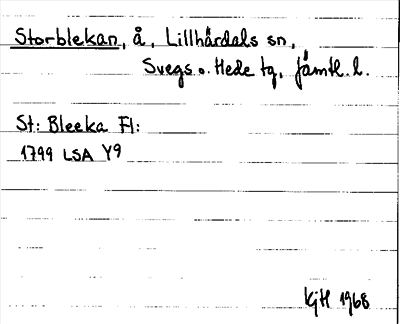 Storblekan, å, Lillhårdals sn,
Svegs o. Hede tg, Jämtl. l.
St: Bleeka Fl:
1799 LSA Y9
KjH 1968